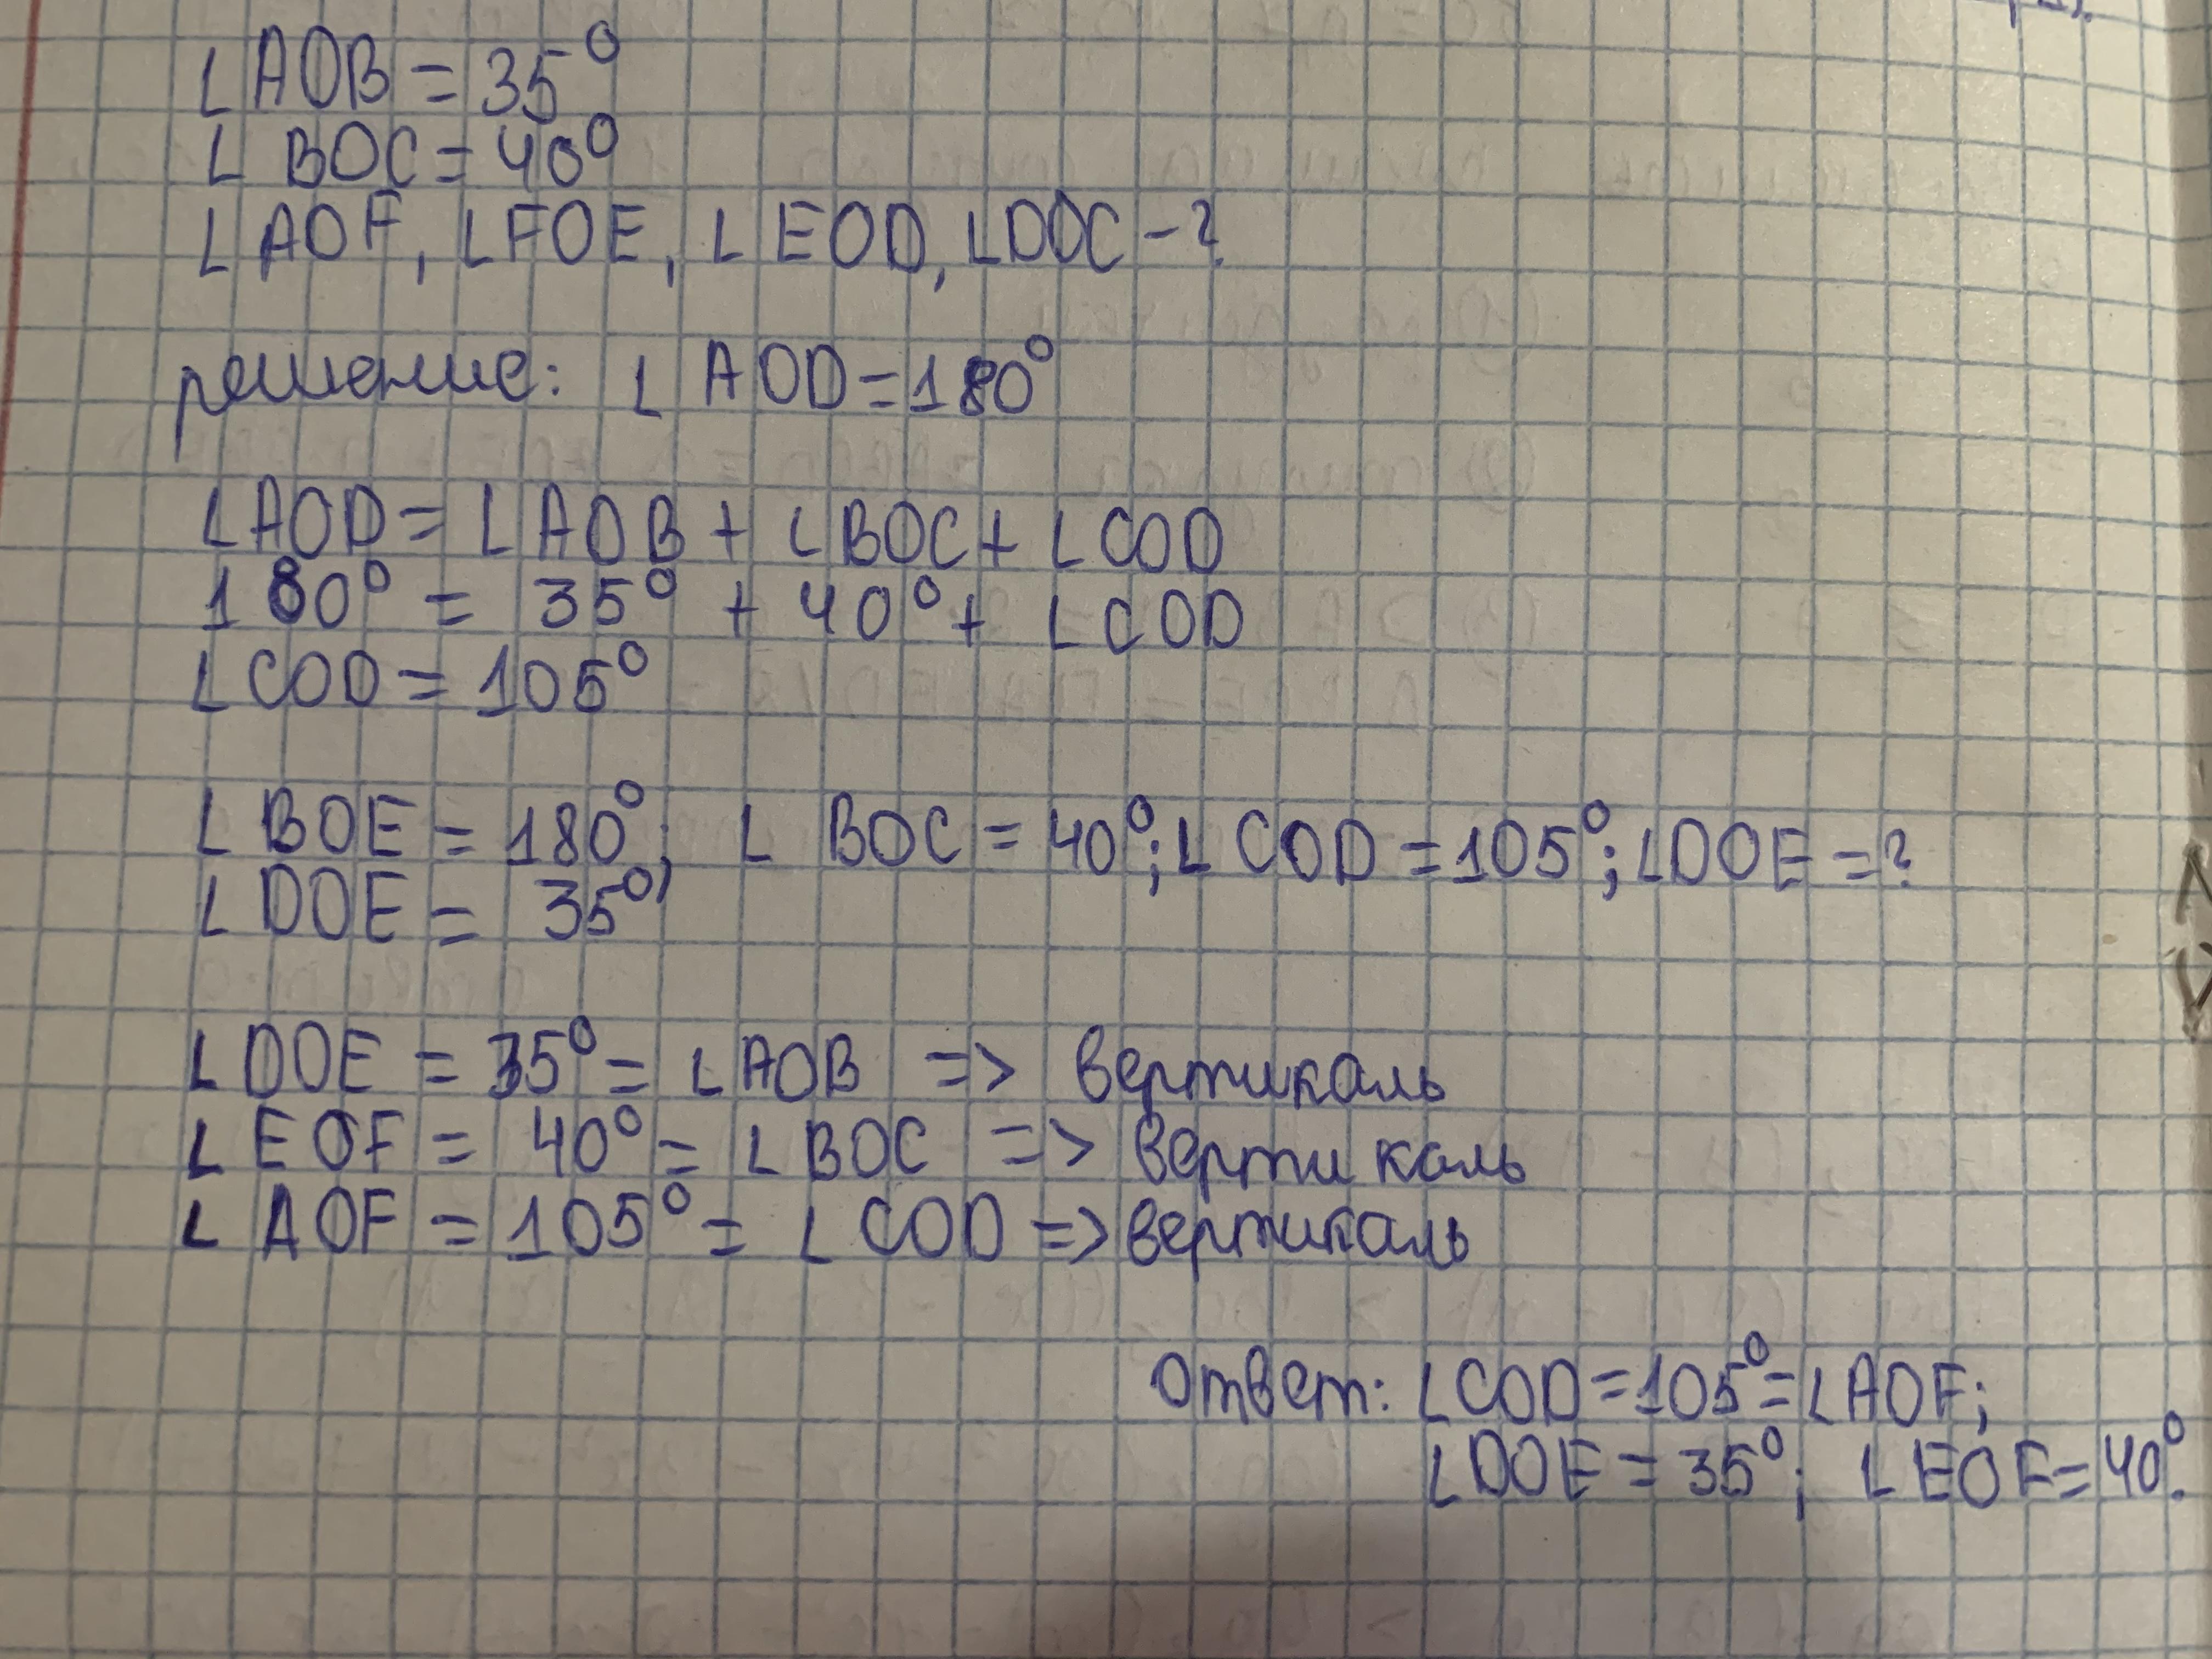 ∠AOB = 35°
∠ BOC = 40°
∠ AOF, ∠FOE, ∠ EOD, ∠DOC - ?
решение: ∠ AOD = 180°
∠AOD = ∠ AOB + ∠BOC + ∠COD
180° = 35° + 40° + ∠COD
∠COD = 105°
∠ BOE = 180°; ∠ BOC = 40°; ∠ COD = 105°; ∠DOE = ?
∠ DOE = 35°
∠ DOE = 35° = ∠ AOB => вертикаль
∠ EOF = 40° = ∠ BOC => вертикаль
∠ AOF = 105° = ∠ COD => вертикаль
Ответ: ∠COD = 105° = ∠AOF;
∠DOE = 35°; ∠EOF = 40°.